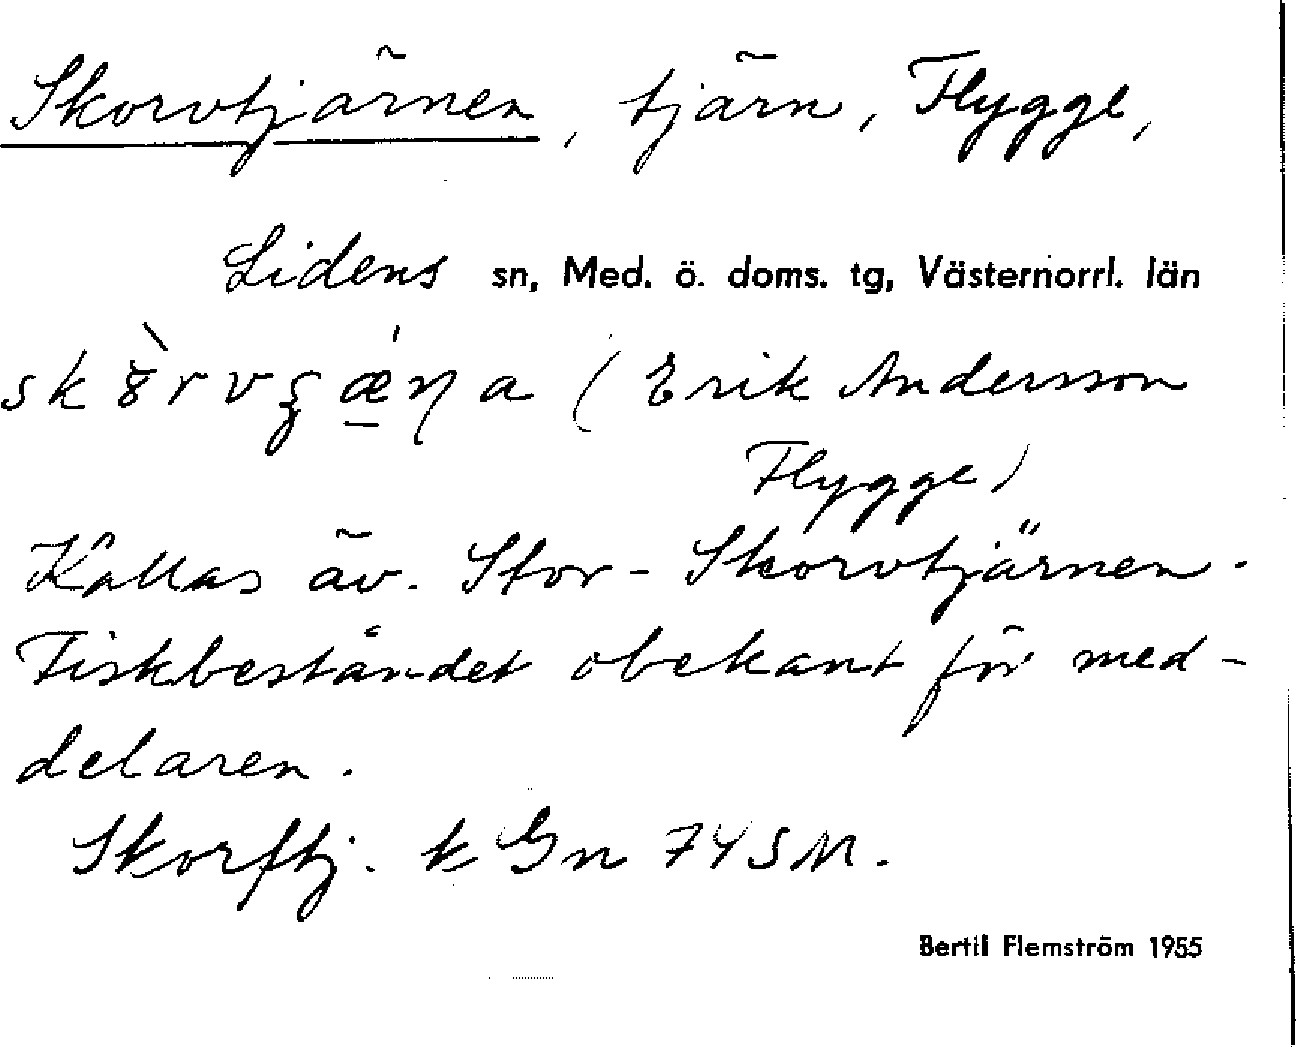 Skorvtjärnen, tjärn, Flygge,
Lidens sn, Med. ö. doms. tg, Västernorrl. län
(Erik Andersson
Flygge)
Kallas äv. Stor-Skorvtjärnen.
Fiskbeståndet obekant för med-
delaren.
Skorftj. k Gn 74 SM.
Bertil Flemström 1955